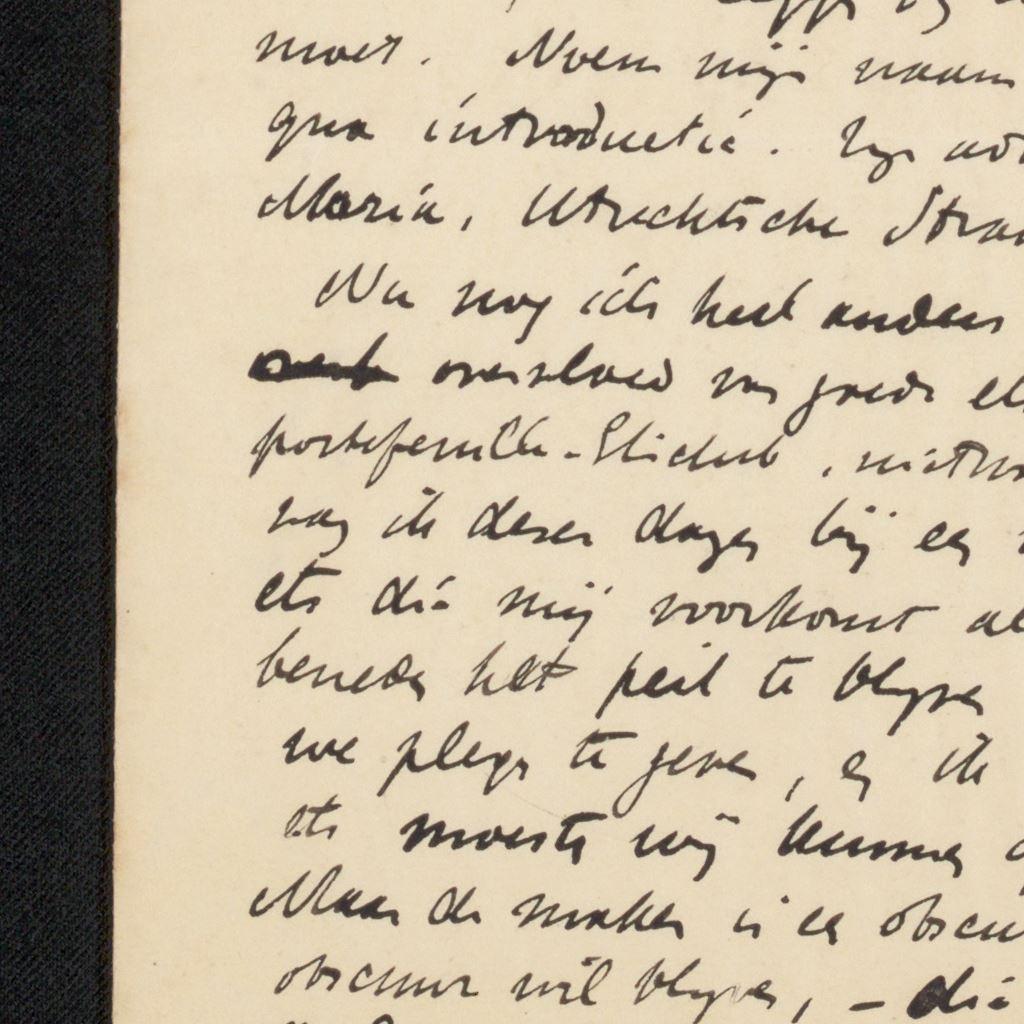 moet. Noem mijn naam
qua introductie. Zyn ad
Maria, Utrechtsche Straa
Nu nog iets heel anders
overvloed van goede ets
portefeuille-Etsclub, niet
zag ik dezer dagen bij een
ets die mij voorkomt
beneden het peil te blyven
we plegen te geven, en ik
ets moesten wij kunnen
Maar de maker is een obscu
obscuur wil blyven, – die